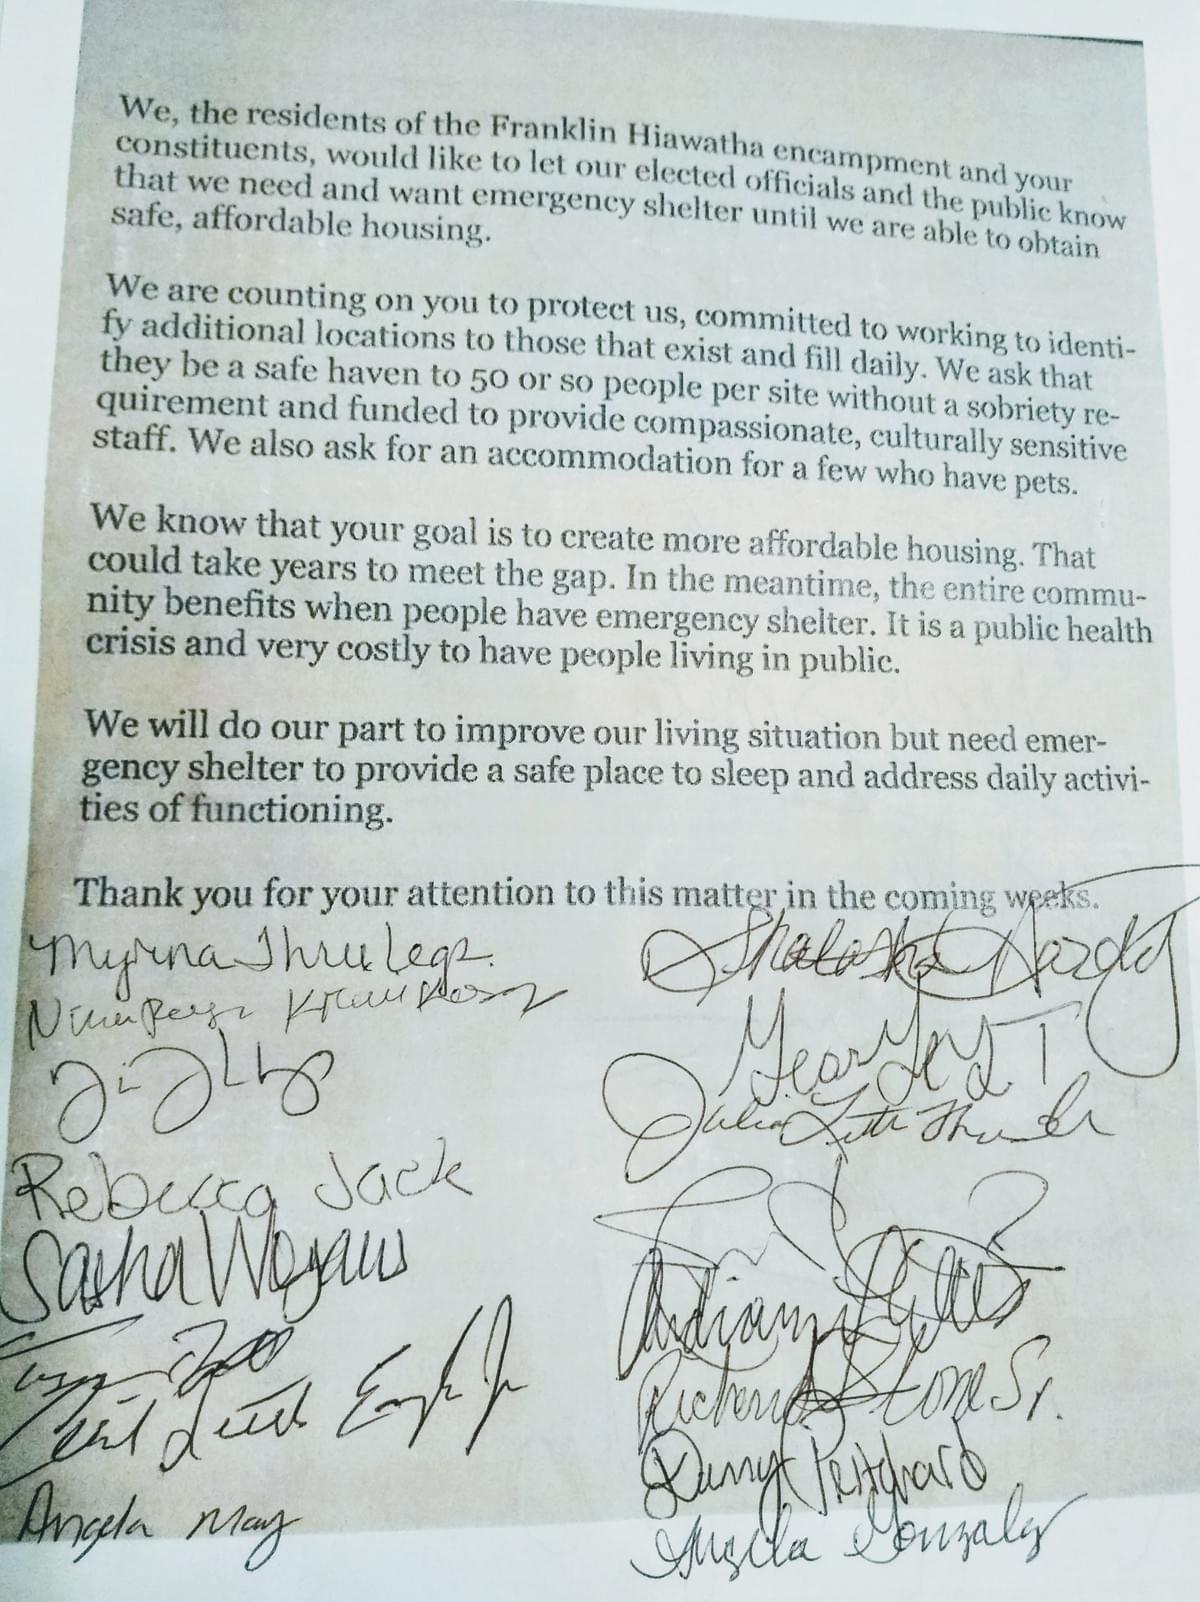 We, the residents of the Franklin Hiawatha encampment and your
constituents, would like to let our elected officials and the public know
that we need and want emergency shelter until we are able to obtain
safe, affordable housing.
We are counting on you to protect us, committed to working to identi-
fy additional locations to those that exist and fill daily. We ask that
they be a safe haven to 50 or so people per site without a sobriety re-
quirement and funded to provide compassionate, culturally sensitive
staff. We also ask for an accommodation for a few who have pets.
We know that your goal is to create more affordable housing. That
could take years to meet the gap. In the meantime, the entire commu-
nity benefits when people have emergency shelter. It is a public health
crisis and very costly to have people living in public.
We will do our part to improve our living situation but need emer-
gency shelter to provide a safe place to sleep and address daily activi-
ties of functioning.
Thank you for your attention to this matter in the coming weeks.
Myrna Three Legs
Rebecca Jack
Sasha
Angela May
Julia
Richard Stone Sr.
Danny Pritchard
Angela Gonzalez